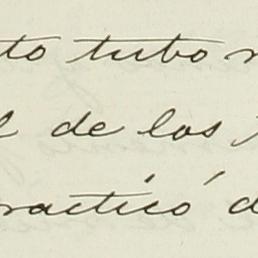 to tubo
de los
practicó d